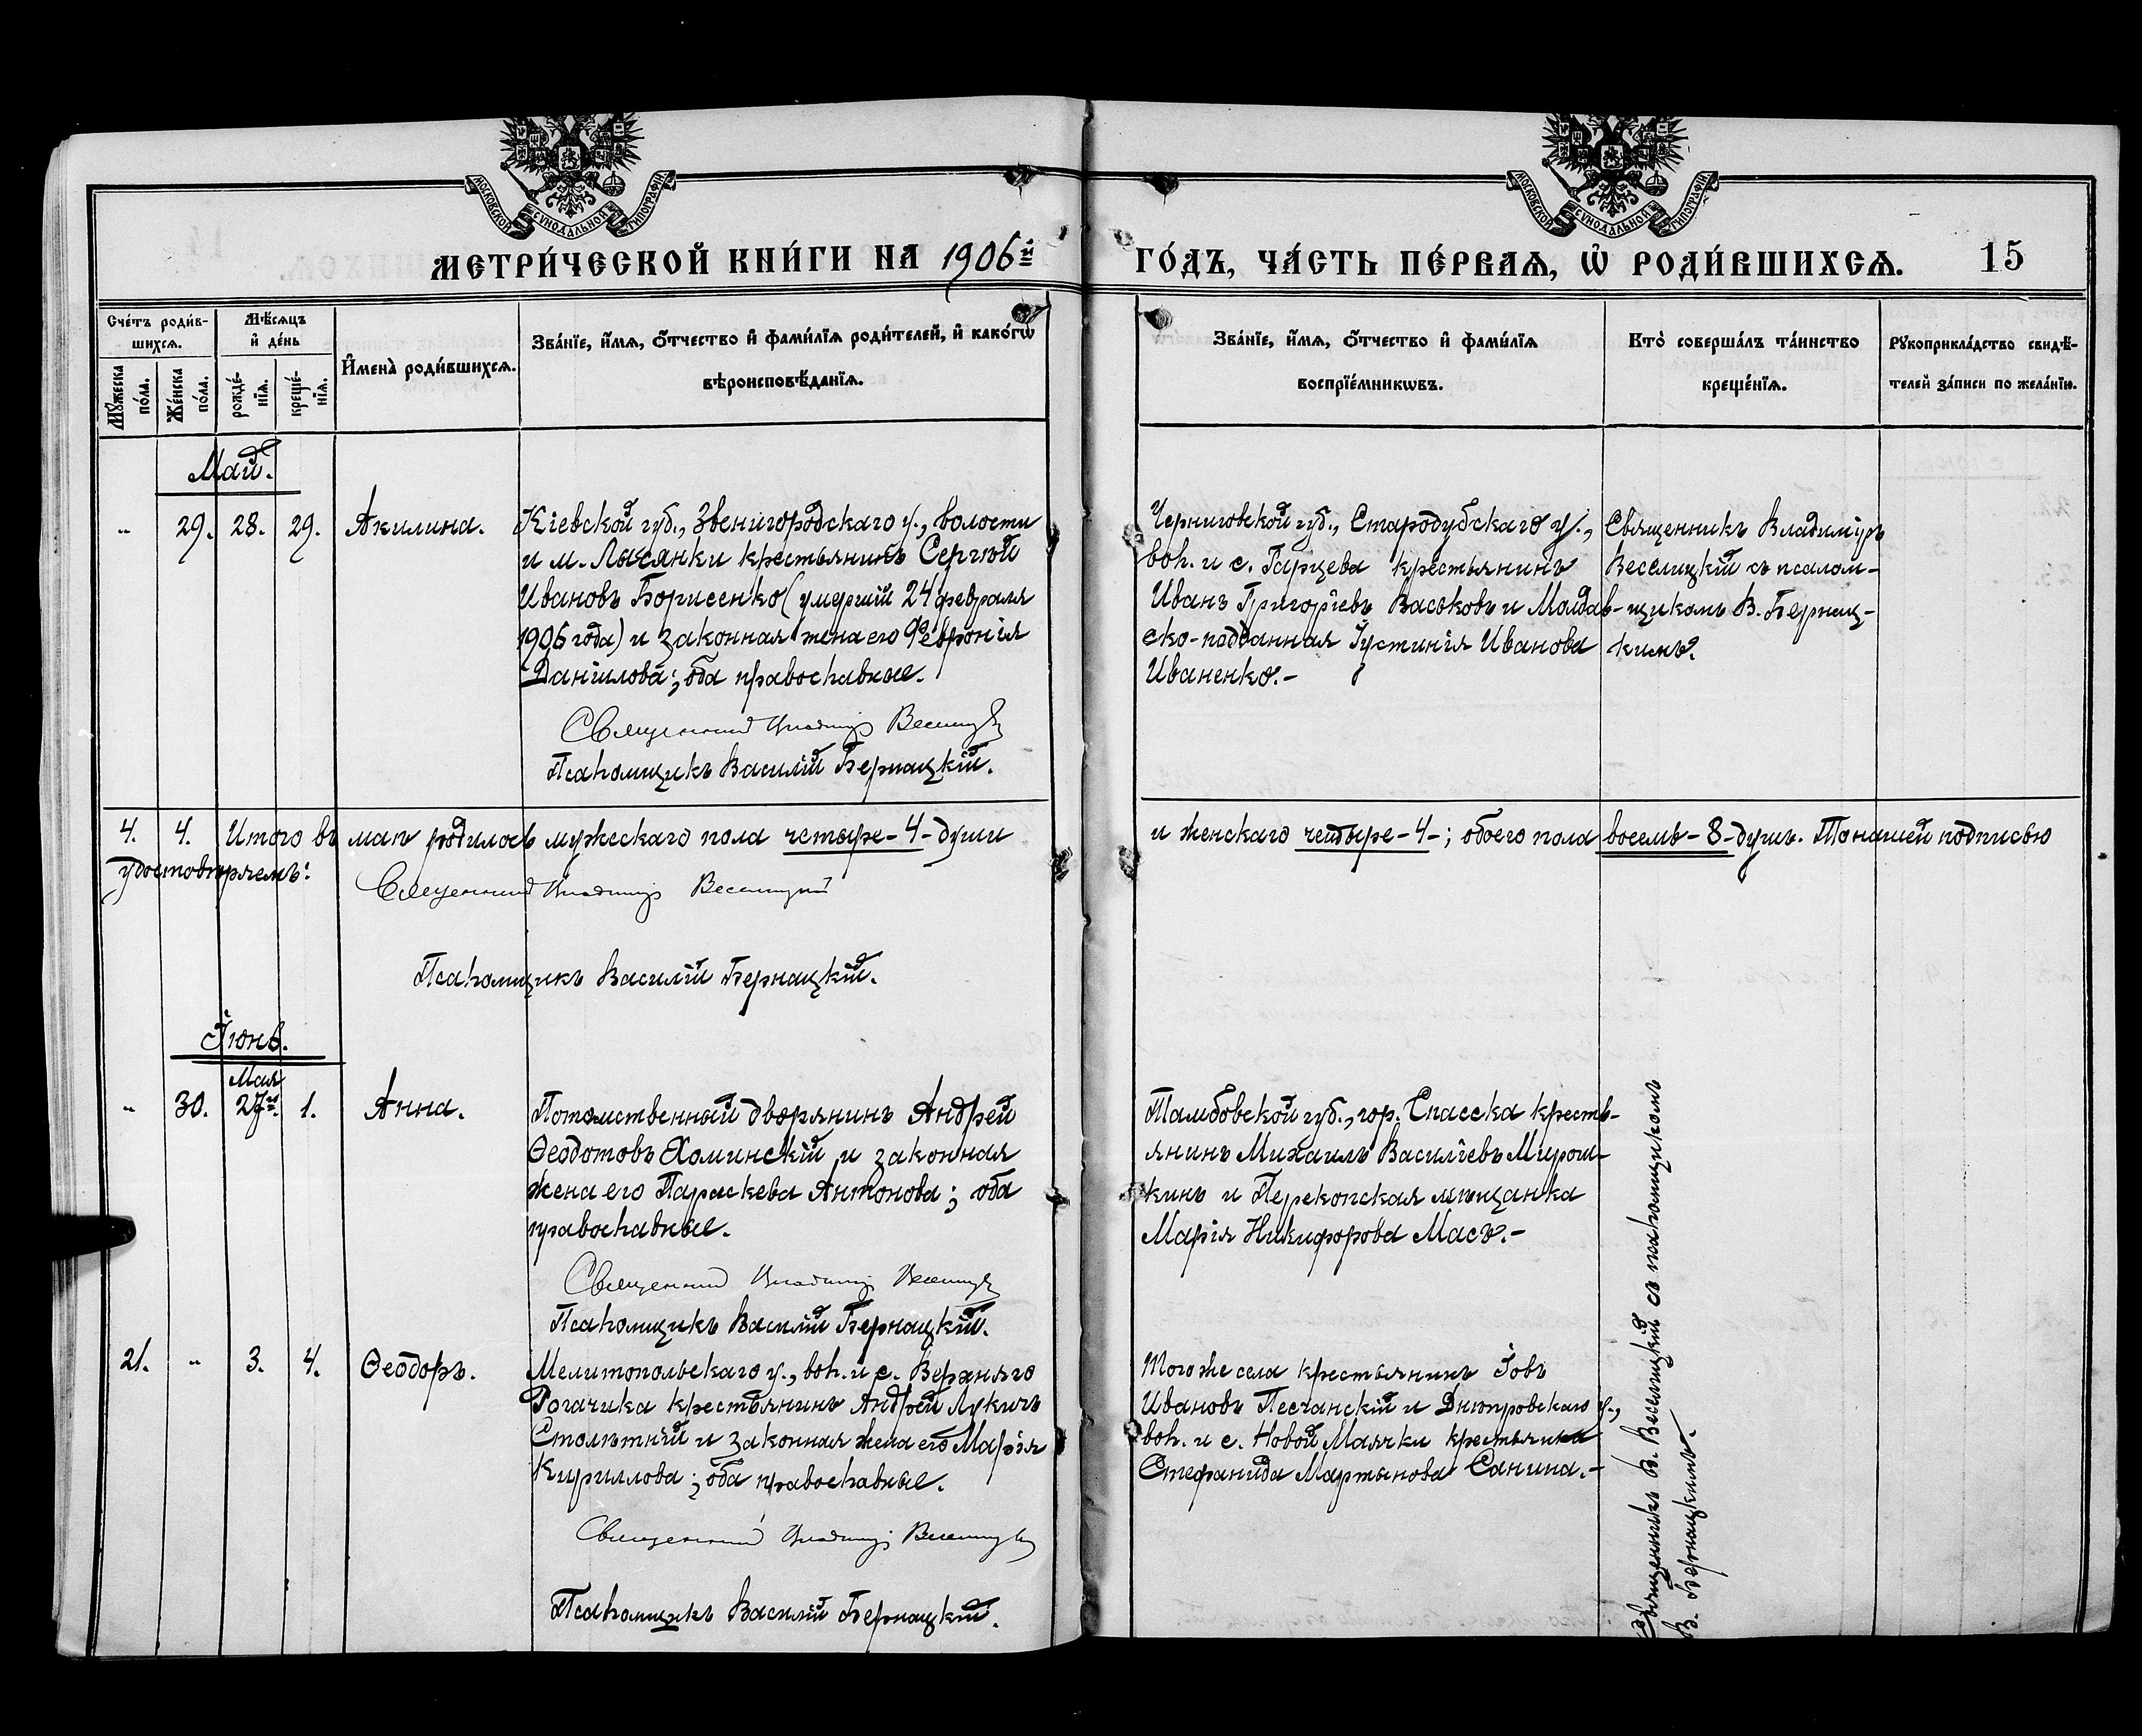 МОСКОВСКОЙ СѴНОДАЛЬНОЙ ТИПОГРАФІИ
МОСКОВСКОЙ СѴНОДАЛЬНОЙ ТИПОГРАФІИ
МЕТРИ́ЧЕСКОЙ КНИ́ГИ НА 1906й ГО́ДЪ, ЧА́СТЬ ПЕ́РВАѦ, Ѡ҆ РОДИ́ВШИХСѦ. 15
Сче́тъ роди́в-
шихсѧ.
Мꙋ́жеска по́ла.
Же́нска по́ла.
Мѣ́сѧцъ
и҆ де́нь
рожде́-
нїѧ.
креще́-
нїѧ.
И҆мена̀ роди́вшихсѧ.
Зва́нїе, и҆́мѧ, ѻ҆́тчество и҆ фами́лїѧ роди́телей, и҆ како́гѡ
вѣроисповѣ́данїѧ.
Зва́нїе, и҆́мѧ, ѻ҆́тчество и҆ фами́лїѧ
воспрїе́мникѡвъ.
Кто̀ соверша́лъ та́инство
креще́нїѧ.
Рꙋкоприкла́дство свидѣ́-
телей за́писи по жела́нїю.
Май.
„ 29. 28. 29. Акилина.
Кіевской губ., Звенигородскаго у., волости
и м. Лысянки крестьянинъ Сергѣй
Ивановъ Борисенко (умершій 24 февраля
1906 года) и законная жена его Февронія
Даніилова; оба православные.
Священникъ Владиміръ Веселицкій
Псаломщикъ Василій Бернацкій.
Черниговской губ., Стародубскаго у.,
вол. и с. Гарцева крестьянинъ
Иванъ Григорьевъ Васьковъ и Молдав-
ско-подданная Іустинія Иванова
Иваненко.-
Священникъ Владиміръ
Веселицкій съ псалом-
щикомъ В. Бернац-
кимъ.
4. 4. Итого въ маѣ родилось мужескаго пола четыре-4-души и женскаго четыре-4-; обоего пола восемь-8-душъ. То нашей подписью
удостовѣряемъ:
Священникъ Владиміръ Веселицкій
Псаломщикъ Василій Бернацкій.
Іюнь.
Мая
„ 30. 27го. 1. Анна.
Потомственный дворянинъ Андрей
Ѳеодотовъ Хоминскій и законная
жена его Параскева Антонова; оба
православные.
Священникъ Владиміръ Веселицкій
Псаломщикъ Василій Бернацкій.
Тамбовской губ., гор. Спасска кресть-
янинъ Михаилъ Васильевъ Мирош-
кинъ и Перекопская мѣщанка
Марія Никифорова Масъ.-
21. „ 3. 4. Ѳеодоръ.
Мелитопольскаго у., вол. и с. Верхняго
Рогачика крестьянинъ Андрей Лукичъ
Столѣтній и законная жена его Марія
Кириллова; оба православные.
Священникъ Владиміръ Веселицкій
Псаломщикъ Василій Бернацкій.
Того же села крестьянинъ Іовъ
Ивановъ Песчанскій и Днѣпровскаго у.,
вол. и с. Новой Маячки крестьянка
Стефанида Мартынова Санина.-
Священникъ В. Веселицкій съ псаломщикомъ
В. Бернацкимъ.